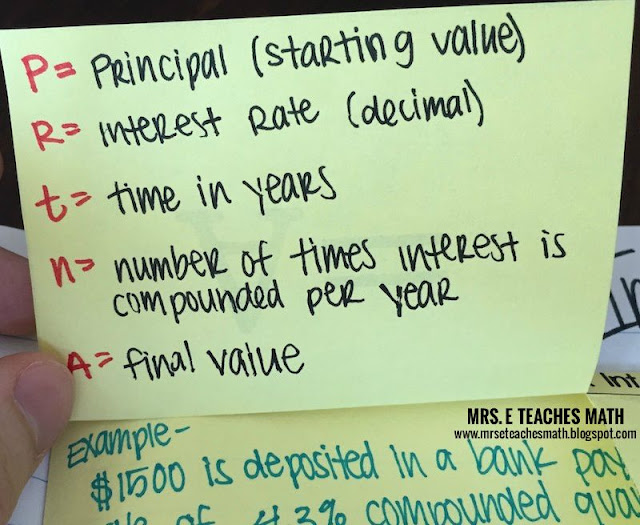 P= Principal (starting value)
R= interest rate (decimal)
t= time in years
n= number of times interest is
compounded per year
A= final value
Int
MRS. E TEACHES MATH
www.mrseteachesmath.blogspot.com
Example-
$1500 is deposited in a bank pay
of 4.3% compounded qua